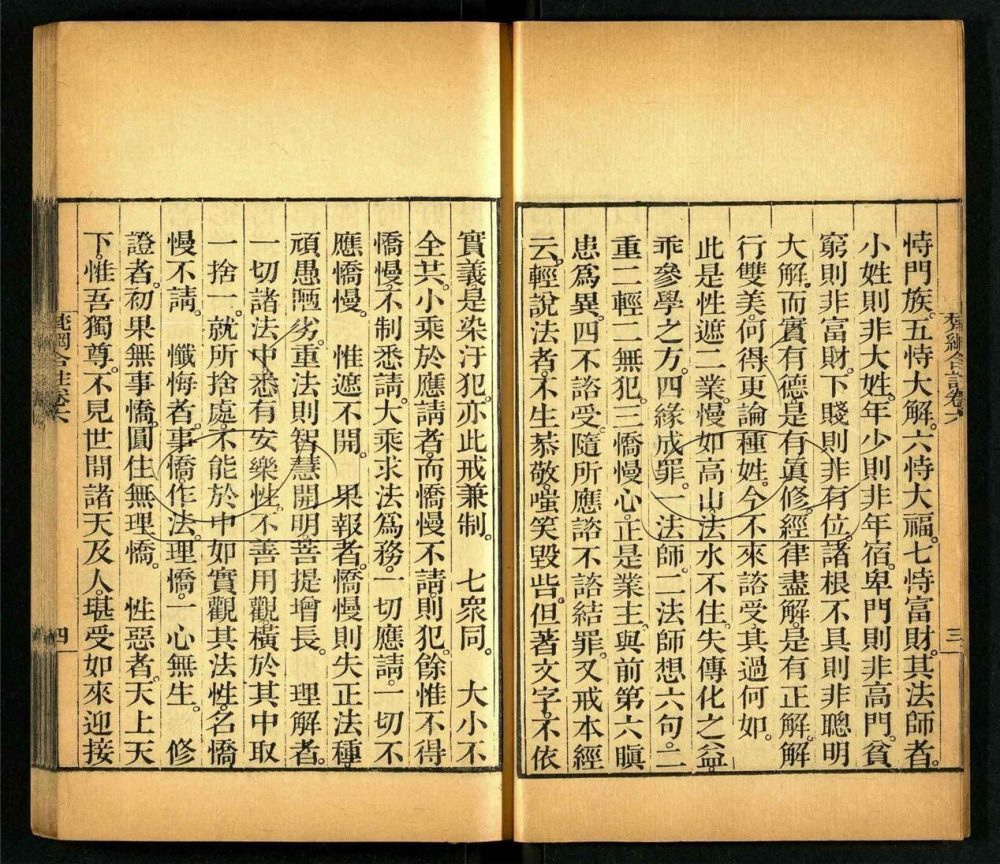 恃門族。五恃大解。六恃大福。七恃富財。其法師者。
小姓則非大姓。年少則非年宿。卑門則非高門。貧
窮則非富財。下賤則非有位。諸根不具則非聰明
大解。而實有德是有眞修。經律盡解。是有正解。解
行雙美。何得更論種姓。今不來諮受其過何如。
此是性遮二業。慢如高山。法水不住。失傳化之益。
乖參學之方。四緣成罪。一法師。二法師想六句。二
重二輕二無犯。三憍慢心。正是業主。與前第六瞋
恚爲異。四不諮受。隨所應諮不諮結罪。又戒本經
云。輕說法者。不生恭敬。嗤笑毀呰。但著文字。不依
梵網合註卷六
三
實義。是染汙犯。亦此戒兼制。　七衆同。　大小不
全共。小乘於應請者。而憍慢不請。則犯。餘惟不得
憍慢。不制悉請。大乘求法爲務。一切應請。一切不
應憍慢。　惟遮不開。　果報者。憍慢則失正法種。
頑愚陋劣。重法則智慧開明。菩提增長。　理解者。
一切諸法中悉有安樂性。不善用觀。橫於其中取
一捨一。就所捨處。不能於中如實觀其法性。名憍
慢不請。　懺悔者。事憍作法。理憍一心無生。　修
證者。初果無事憍。圓住無理憍。　性惡者。天上天
下。惟吾獨尊。不見世間諸天及人。堪受如來迎接
梵網合註卷六
四